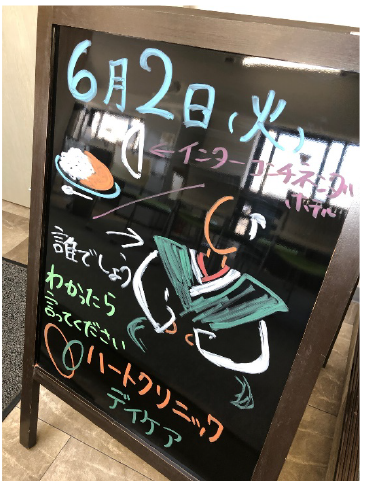 6月2日(火)
←インターコンチネンタル
ホテル
誰でしょう
わかったら
言ってください
ハートクリニック
デイケア